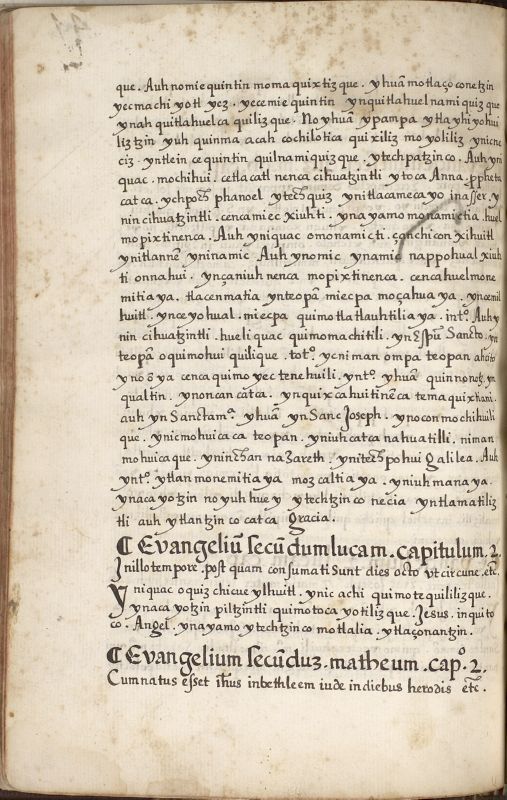 que. Auh nomiequintin moma quixtizque. yhuā motlaço conetzin
yecmachiyotl yez. yecemiequintin ynquitlahuelnamiquizque
ynahquitlahuelcaquilizque. No yhuā ypampa ytlayhiyohui
liztzin yuh quinma acah cochilotica quixiliz moyoliliz ynicne
ciz. yntlein cequintin quilnamiquizque. ytechpatzinco. Auh yni
quac. mochihui. cetlacatl nenca cihuatzintli ytoca Anna. ppheta
catca. ychpoch phanoel ytechquiz ynitlacamecayo inasser. y
nin cihuatzintli. cencamiec xiuhti. ynayamo monamictia. huel
mopixtinenca. Auh yniquac omonamicti. çanchicon xihuitl
ynitlannē yninamic. Auh ynomic ynamic nappohualxiuh
ti onnahui. ynçaniuh nenca mopixtinenca. cencahuelmone
mitiaya. tlacenmatia ynteopā miecpa moçahuaya. yncemil
huitl. ynceyohual. miecpa quimotlatlauhtiliaya. intº. Auh y
nin cihuatzintli. huel iquac quimomachitili. ynespū Sancto. yn
teopā oquimohuiquilique. totº. yc niman ompa teopan ahcito
ynoōya cencaquimoyectenehuili. yntº. yhuā quinnonotz. yn
qualtin. ynoncan catca. ynquixcahuitinēca temaquixtiani.
auh yn Sanctamª. yhuā yn Sanc Joseph. ynoconmochihuili
que. ynicmohuicaca teopan. yniuh catca nahuatilli. niman
mohuicaque. yninchan naZareth. ynitech pohui Galilea. Auh
yntº. ytlan monemitiaya mozcaltiaya. yniuh manaya.
ynacayotzin no yuh huey ytechtzinco necia yntlamatiliz
tli auh ytlantzinco catca Gracia.
¶ Evangeliū secūdum lucam. capitulum. 2.
Inillo tempore. postquam consumati Sunt dies octo vt circune. etc̄.
Yniquac oquizchicueylhuitl. ynic achi quimotequililizque.
ynacayotzin piltzintli quimotocayotilizque. Jesus. inquito
co. Angel. ynayamo ytechtzinco motlalia. ytlaçonantzin.
¶ Evangelium secūduz. matheum. capº. 2.
Cum natus esset ih̄us in bethleem iude in diebus herodis etc̄.